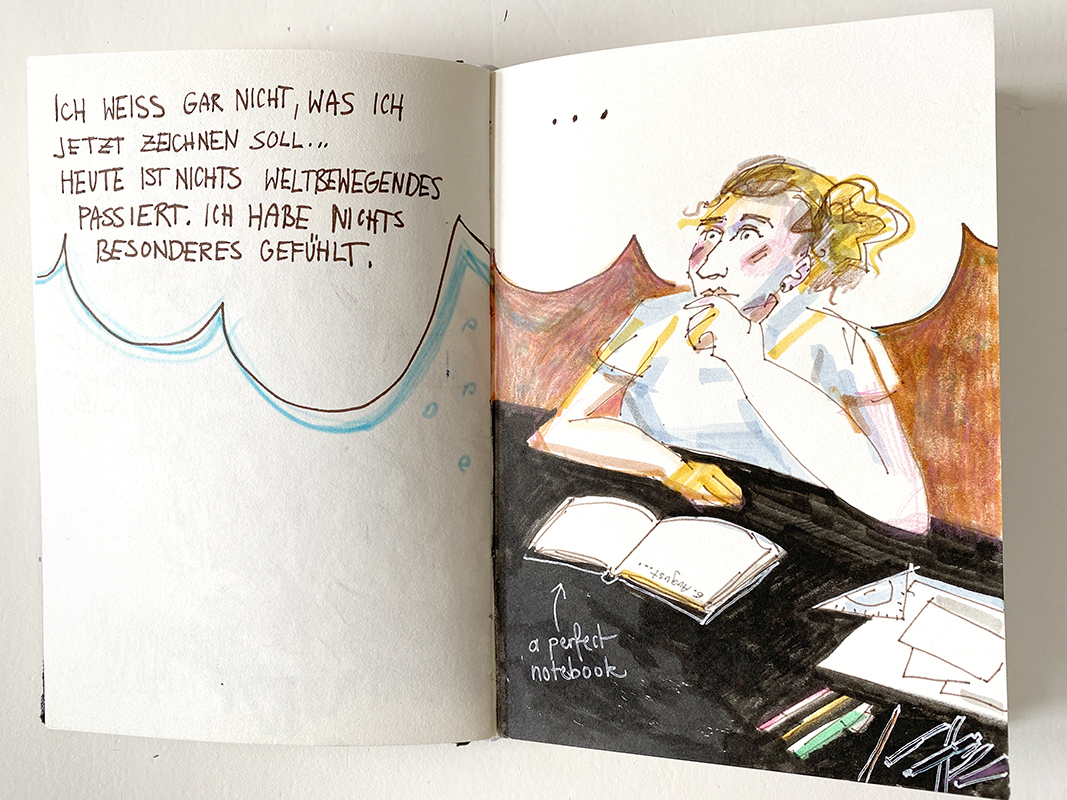 ICH WEISS GAR NICHT, WAS ICH
JETZT ZEICHNEN SOLL...
HEUTE IST NICHTS WELTBEWEGENDES
PASSIERT. ICH HABE NICHTS
BESONDERES GEFÜHLT.
...
6. August...
a perfect
notebook